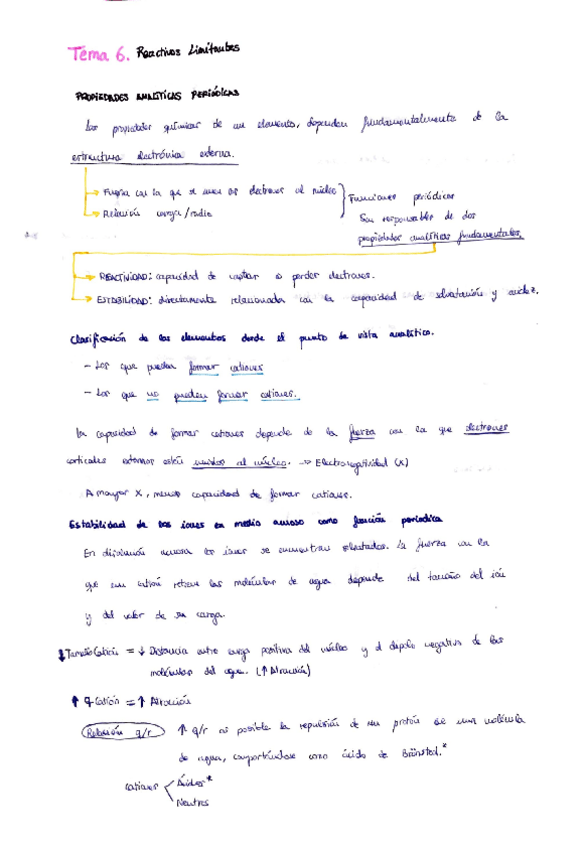 Tema 6. Reactivos Limitantes
PROPIEDADES ANALÍTICAS PERIÓDICAS
Las propiedades químicas de un elemento, dependen fundamentalmente de la
estructura electrónica externa.
Fuerza con la que se unen los electrones al núcleo
Relación carga/radio
Funciones periódicas
Son responsables de dos
propiedades analíticas fundamentales.
REACTIVIDAD: capacidad de captar o perder electrones.
ESTABILIDAD: directamente relacionada con la capacidad de solvatación y acidez.
Clasificación de los elementos desde el punto de vista analítico.
- Los que pueden formar cationes
- Los que no pueden formar cationes.
La capacidad de formar cationes depende de la fuerza con la que electrones
corticales externos están unidos al núcleo. → Electronegatividad (X)
A mayor X, menos capacidad de formar cationes.
Estabilidad de los iones en medio acuoso como función periódica
En disolución acuosa los iones se encuentran solvatados. La fuerza con la
que un catión retiene las moléculas de agua depende del tamaño del ión
y del valor de su carga.
↓Tamaño Catión = ↓ Distancia entre carga positiva del núcleo y el dipolo negativo de las
moléculas del agua. (↑ Atracción)
↑ q Catión = ↑ Atracción
Relación q/r
↑ q/r es posible la repulsión de un protón de una molécula
de agua, comportándose como ácido de Brönsted.*
cationes
Ácidos*
Neutros